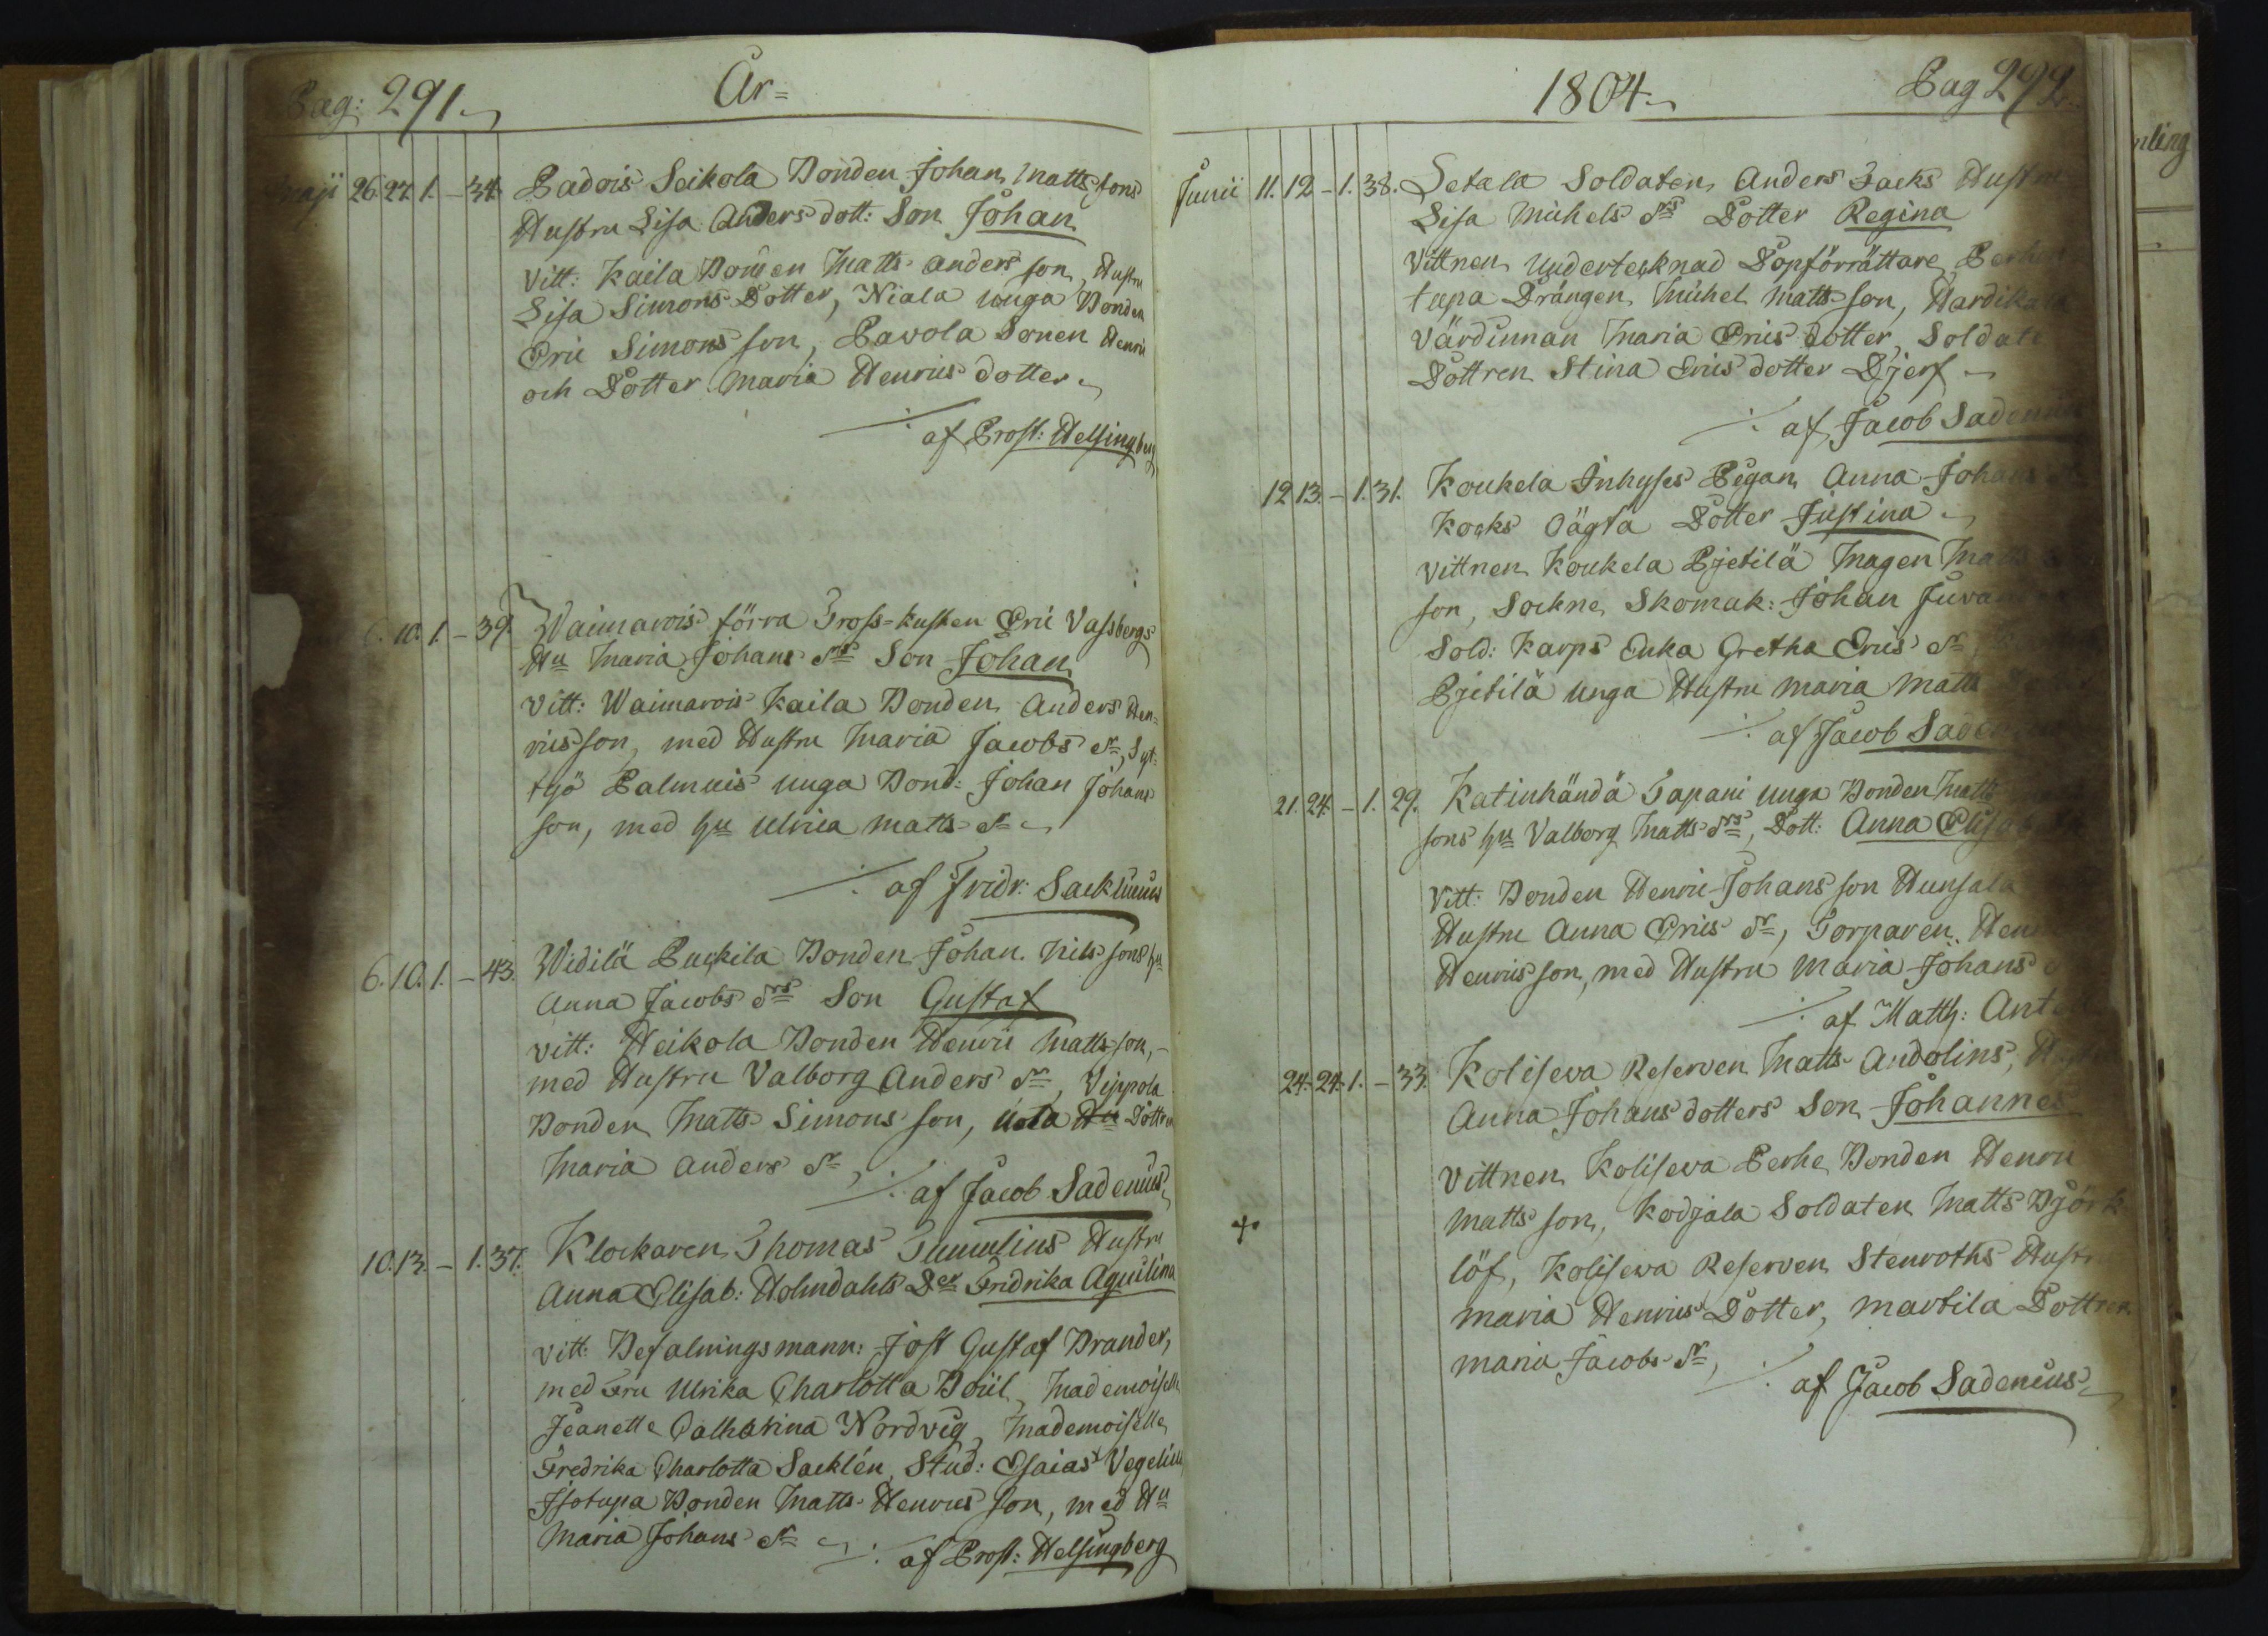 Pag: 291.
År=
Maji 26. 27. 1. - 34. Padois Seikola Bonden Johan Mattssons
Hustru Lisa Anders dott: Son Johan
Vitt: Kaila Bonden Matts Andersson, Hustru
Lisa Simons Dotter, Niala unga Bonden
Eric Simons son, Pavola Sonen Henric
och Dotter Maria Henrics dotter
∕. af Prost: Helsingberg
6. 10. 1. - 39. Waimarois förra Tross-kusken Eric Vassbergs
Hu Maria Johans drs Son Johan
Vitt: Waimarois Kaila Bonden Anders Hen=
ricsson, med Hustru Maria Jacobs dr,
työ Palmuis unga Bond: Johan Johans
son, med hu Ulrica Matts dr
∕. af Fridr: Sacklinius
6. 10. 1. - 43. Widilä Puckila Bonden Johan Nils sons hu
Anna Jacobs drs Son Gustaf
vitt: Heikola Bonden Henric Mattsson,
med Hustru Valborg Anders dr, Vippola
Bonden Matts Simons son, Uota Hu Dottren
Maria Anders dr,
∕. af Jacob Sadenius
10. 13. - 1. 37. Klockaren Thomas Tumulins Hustru
Anna Elisab: Holmdahls Dr Fridrika Aquilina
vitt: Befalningsmann: Jost Gustaf Brander,
med Fru Ulrika Charlotta Boül, Mademoiselle
Jeanette Catharina Nordvig, Mademoiselle
Fredrika Charlotta Sacklén, Stud: Esaias Vegelius
Isotupa Bonden Matts Henrics son, med Hu
Maria Johans dr
∕. af Prost: Helsingberg
1804.
Pag 292.
Junii 11. 12 - 1. 38. Setala Soldaten Anders Tacks Hustru
Lisa Michels drs Dotter Regina
Vittnen Undertecknad Dopförrättare,
tupa Drängen Michel Matts son,
Värdinnan Maria Erics dotter, Soldate
Dottren Stina Erics dotter Djerf
∕. af Jacob Sadenius
12 13. - 1. 31. Koukela Inhyses Pigan Anna Johans
Kocks Oägta Dotter Justina
vittnen Koukela Pjetilä Magen Matts
son, Sockne Skomak: Johan
Sold: Karps Enka Gretha Erics dr
Pjetilä unga Hustru Maria Matts
∕. af Jacob Sadenius
21. 24. - 1. 29. Katinhändä Tapani unga Bonden Matts
sons hu Valborg Matts drs, Dott: Anna Elisab
Vitt: Bonden Henric Johans son Hunsala
Hustru Anna Erics dr, Torparen Henric
Henrics son, med Hustru Maria Johans d
∕. af Matth: Ant
24. 24. 1. - 33. Koliseva Reserven Matts Andolins,
Anna Johans dotters Son Johannes
vittnen Kolisewa Perhe Bonden Henric
Matts son, Kodjala Soldaten Matts Björk
löf, Kolisewa Reserven Stenroths Hustr
Maria Henrics Dotter, Martila Dottren
Maria Jacobs dr,
∕. af Jacob Sadenius